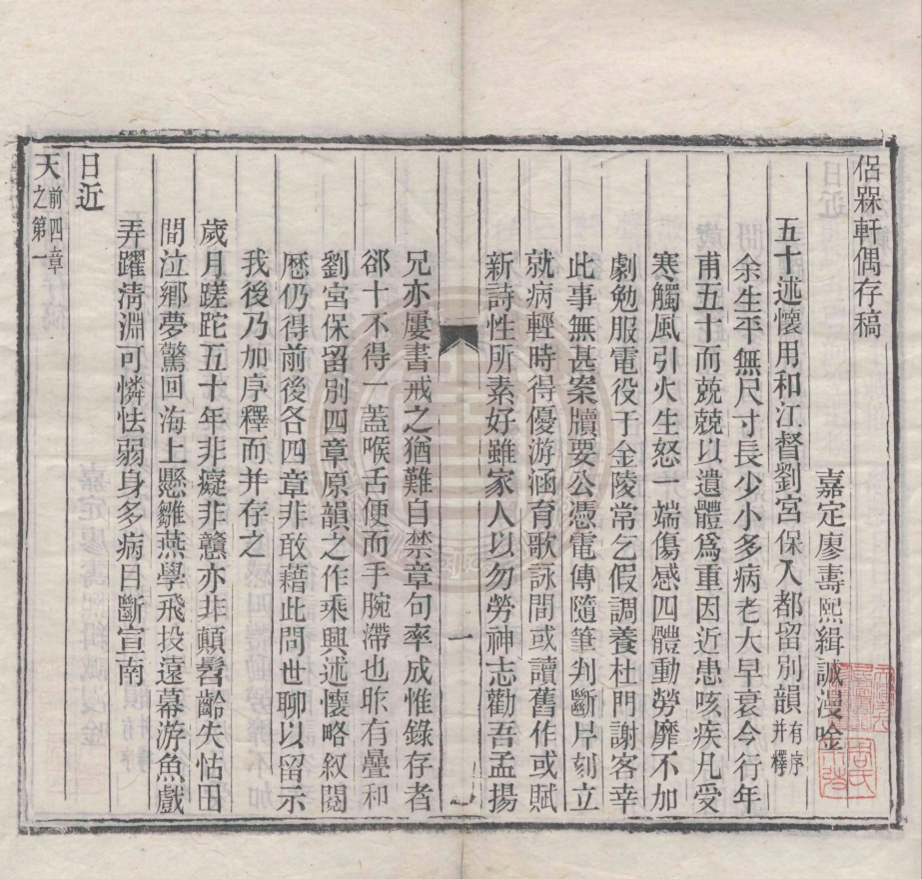 侶槑軒偶存稿
嘉定廖壽熙緝誠漫唫
五十述懷用和江督劉宮保入都留別韻有序并釋
余生平無尺寸長少小多病老大早衰今行年
甫五十而兢兢以遺體爲重因近患咳疾凡受
寒觸風引火生怒一端傷感四體動勞靡不加
劇勉服電役于金陵常乞假調養杜門謝客幸
此事無甚案牘要公憑電傳隨筆判斷片刻立
就病輕時得優游涵育歌詠間或讀舊作或賦
新詩性所素好雖家人以勿勞神志勸吾孟揚
一
兄亦屢書戒之猶難自禁章句率成惟錄存者
郤十不得一蓋喉舌便而手腕滯也昨有疊和
劉宮保留別四章原韻之作乘興述懷略叙閱
歷仍得前後各四章非敢藉此問世聊以留示
我後乃加序釋而并存之
歲月蹉跎五十年非癡非戇亦非顛髫齡失怙田
間泣鄉夢驚回海上懸雛燕學飛投遠幕游魚戲
弄躍淸淵可憐怯弱身多病日斷宣南
日近
天前四章之第一